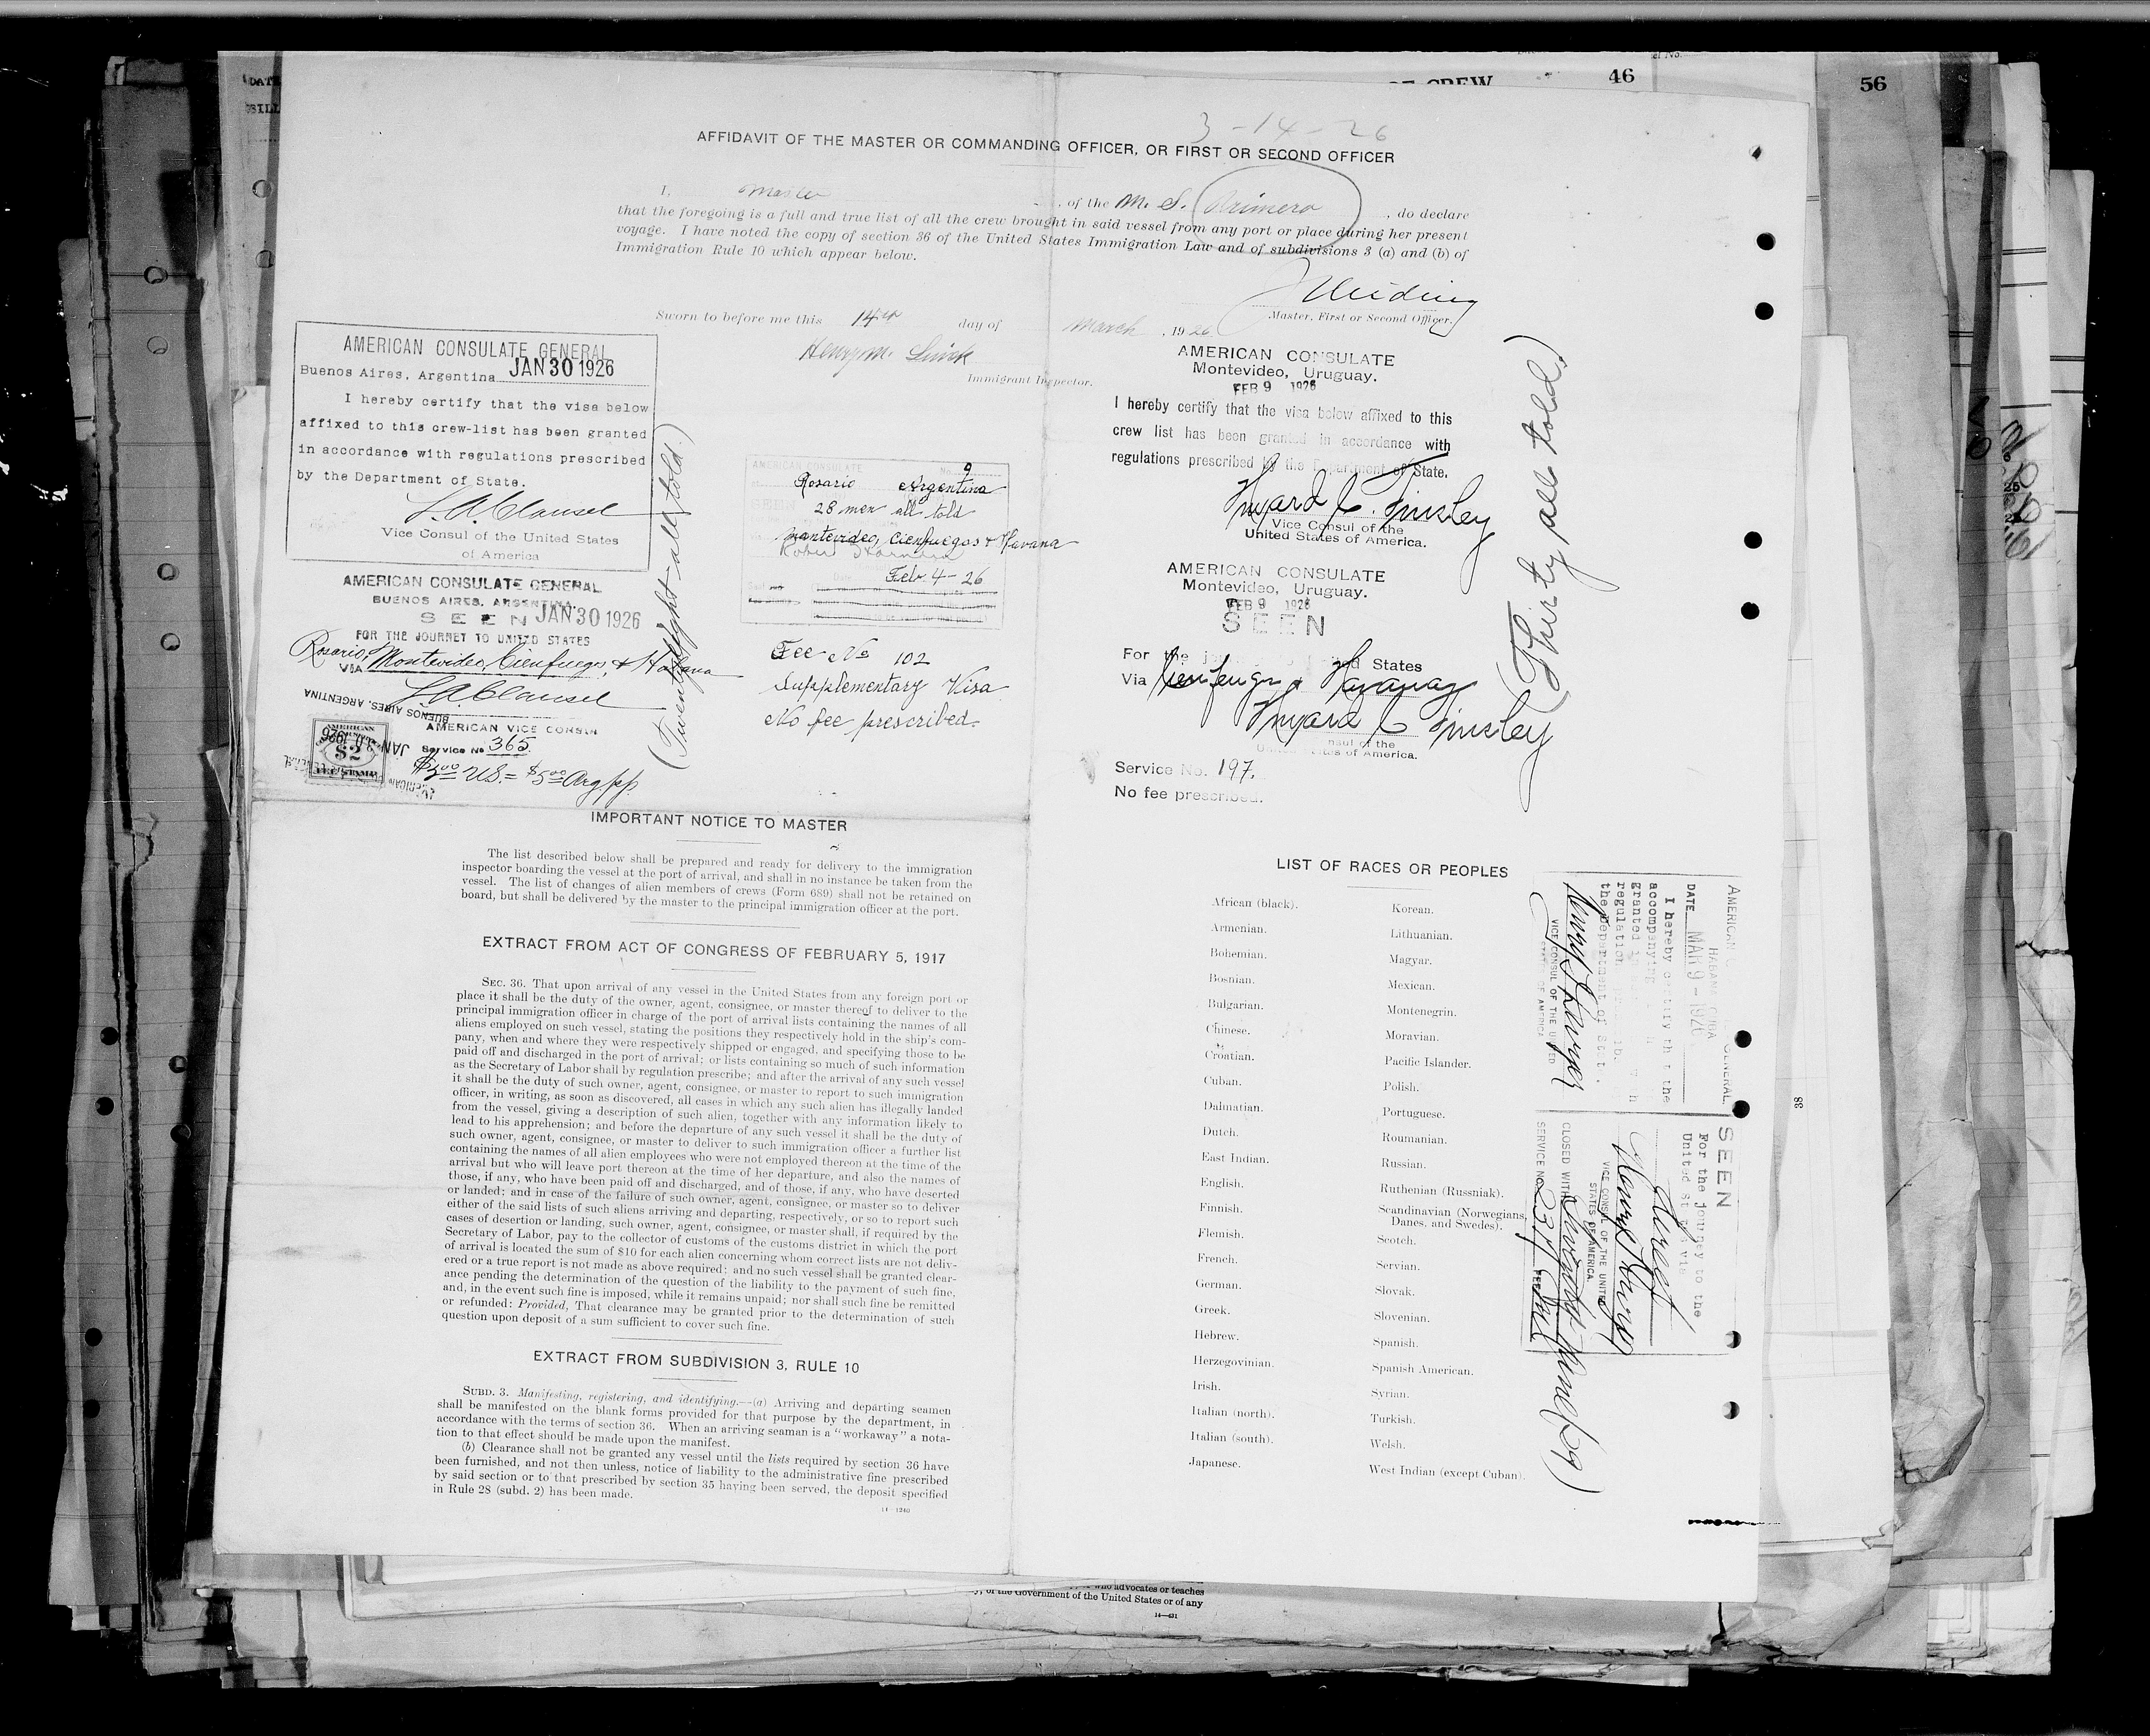 46
56
OF CREW
3-14-26
AFFIDAVIT OF THE MASTER OR COMMANDING OFFICER, OR FIRST OR SECOND OFFICER
I, Master of the M. S. Primero, do declare
that the foregoing is a full and true list of all the crew brought in said vessel from any port or place during her present
voyage. I have noted the copy of section 36 of the United States Immigration Law and of subdivisions 3 (a) and (b) of
Immigration Rule 10 which appear below.
Master, First or Second Officer.
Sworn to before me this 14th day of March, 1926
Henry M.
Immigrant Inspector.
AMERICAN CONSULATE GENERAL
Buenos Aires, Argentina JAN 30 1926
I hereby certify that the visa below
affixed to this crew-list has been granted
in accordance with regulations prescribed
by the Department of State.
L.A. Clausel
Vice Consul of the United States
of America
AMERICAN CONSULATE GENERAL
BUENOS AIRES, ARGENTINA.
SEEN JAN 30 1926
FOR THE JOURNEY TO UNITED STATES
Rosario,
VIA Montevideo, Cienfuegos, & Havana
L.A. Clausel
AMERICAN VICE CONSUL
Service No 365
$2
BUENOS AIRES, ARGENTINA
JAN 30 1926
(Twenty eight - all told.)
AMERICAN CONSULATE
No. 9
Rosario Argentina
28 men all told
Montevideo, Cienfuegos & Havana
Date Feb. 4-26
Fee No 102
Supplementary Visa
No fee prescribed.
AMERICAN CONSULATE
Montevideo, Uruguay.
FEB 9 1926
I hereby certify that the visa below affixed to this
crew list has been granted in accordance with
regulations prescribed by the Department of State.
Inyard C. Tinsley
Vice Consul of the
United States of America.
AMERICAN CONSULATE
Montevideo, Uruguay.
FEB 9 1926
SEEN
For the journey to United States
Via Cienfuegos & Havana
Inyard C Tinsley
United States of America.
Service No. 197.
No fee prescribed.
(Thirty all told.)
IMPORTANT NOTICE TO MASTER
The list described below shall be prepared and ready for delivery to the immigration
inspector boarding the vessel at the port of arrival, and shall in no instance be taken from the
vessel. The list of changes of alien members of crews (Form 689) shall not be retained on
board, but shall be delivered by the master to the principal immigration officer at the port.
EXTRACT FROM ACT OF CONGRESS OF FEBRUARY 5, 1917
SEC. 36. That upon arrival of any vessel in the United States from any foreign port or
place it shall be the duty of the owner, agent, consignee, or master thereof to deliver to the
principal immigration officer in charge of the port of arrival lists containing the names of all
aliens employed on such vessel, stating the positions they respectively hold in the ship's com-
pany, when and where they were respectively shipped or engaged, and specifying those to be
paid off and discharged in the port of arrival; or lists containing so much of such information
as the Secretary of Labor shall by regulation prescribe; and after the arrival of any such vessel
it shall be the duty of such owner, agent, consignee, or master to report to such immigration
officer, in writing, as soon as discovered, all cases in which any such alien has illegally landed
from the vessel, giving a description of such alien, together with any information likely to
lead to his apprehension; and before the departure of any such vessel it shall be the duty of
such owner, agent, consignee, or master to deliver to such immigration officer a further list
containing the names of all alien employees who were not employed thereon at the time of the
arrival but who will leave port thereon at the time of her departure, and also the names of
those, if any, who have been paid off and discharged, and of those, if any, who have deserted
or landed; and in case of the failure of such owner, agent, consignee, or master so to deliver
either of the said lists of such aliens arriving and departing, respectively, or so to report such
cases of desertion or landing, such owner, agent, consignee, or master shall, if required by the
Secretary of Labor, pay to the collector of customs of the customs district in which the port
of arrival is located the sum of $10 for each alien concerning whom correct lists are not deliv-
ered or a true report is not made as above required; and no such vessel shall be granted clear-
ance pending the determination of the question of the liability to the payment of such fine,
and, in the event such fine is imposed, while it remains unpaid; nor shall such fine be remitted
or refunded: Provided, That clearance may be granted prior to the determination of such
question upon deposit of a sum sufficient to cover such fine.
EXTRACT FROM SUBDIVISION 3, RULE 10
SUBD. 3. Manifesting, registering, and identifying.—(a) Arriving and departing seamen
shall be manifested on the blank forms provided for that purpose by the department, in
accordance with the terms of section 36. When an arriving seaman is a "workaway" a nota-
tion to that effect should be made upon the manifest.
(b) Clearance shall not be granted any vessel until the lists required by section 36 have
been furnished, and not then unless, notice of liability to the administrative fine prescribed
by said section or to that prescribed by section 35 having been served, the deposit specified
in Rule 28 (subd. 2) has been made.
14—1240
LIST OF RACES OR PEOPLES
African (black).
Armenian.
Bohemian.
Bosnian.
Bulgarian.
Chinese.
Croatian.
Cuban.
Dalmatian.
Dutch.
East Indian.
English.
Finnish.
Flemish.
French.
German.
Greek.
Hebrew.
Herzegovinian.
Irish.
Italian (north).
Italian (south).
Japanese.
Korean.
Lithuanian.
Magyar.
Mexican.
Montenegrin.
Moravian.
Pacific Islander.
Polish.
Portuguese.
Roumanian.
Russian.
Ruthenian (Russniak).
Scandinavian (Norwegians,
Danes, and Swedes).
Scotch.
Servian.
Slovak.
Slovenian.
Spanish.
Spanish American.
Syrian.
Turkish.
Welsh.
West Indian (except Cuban).
AMERICAN GENERAL
HABANA CUBA
DATE MAR 9 - 1926
I hereby certify that the
accompanying
granted in
regulation
the Department of State.
VICE CONSUL OF THE UNITED
STATES OF AMERICA
SEEN
For the journey to the
United States via
direct
VICE CONSUL OF THE UNITED
STATES OF AMERICA.
CLOSED WITH Twenty Nine (29)
SERVICE NO.
38
who advocates or teaches
of the Government of the United States or of any
14—431